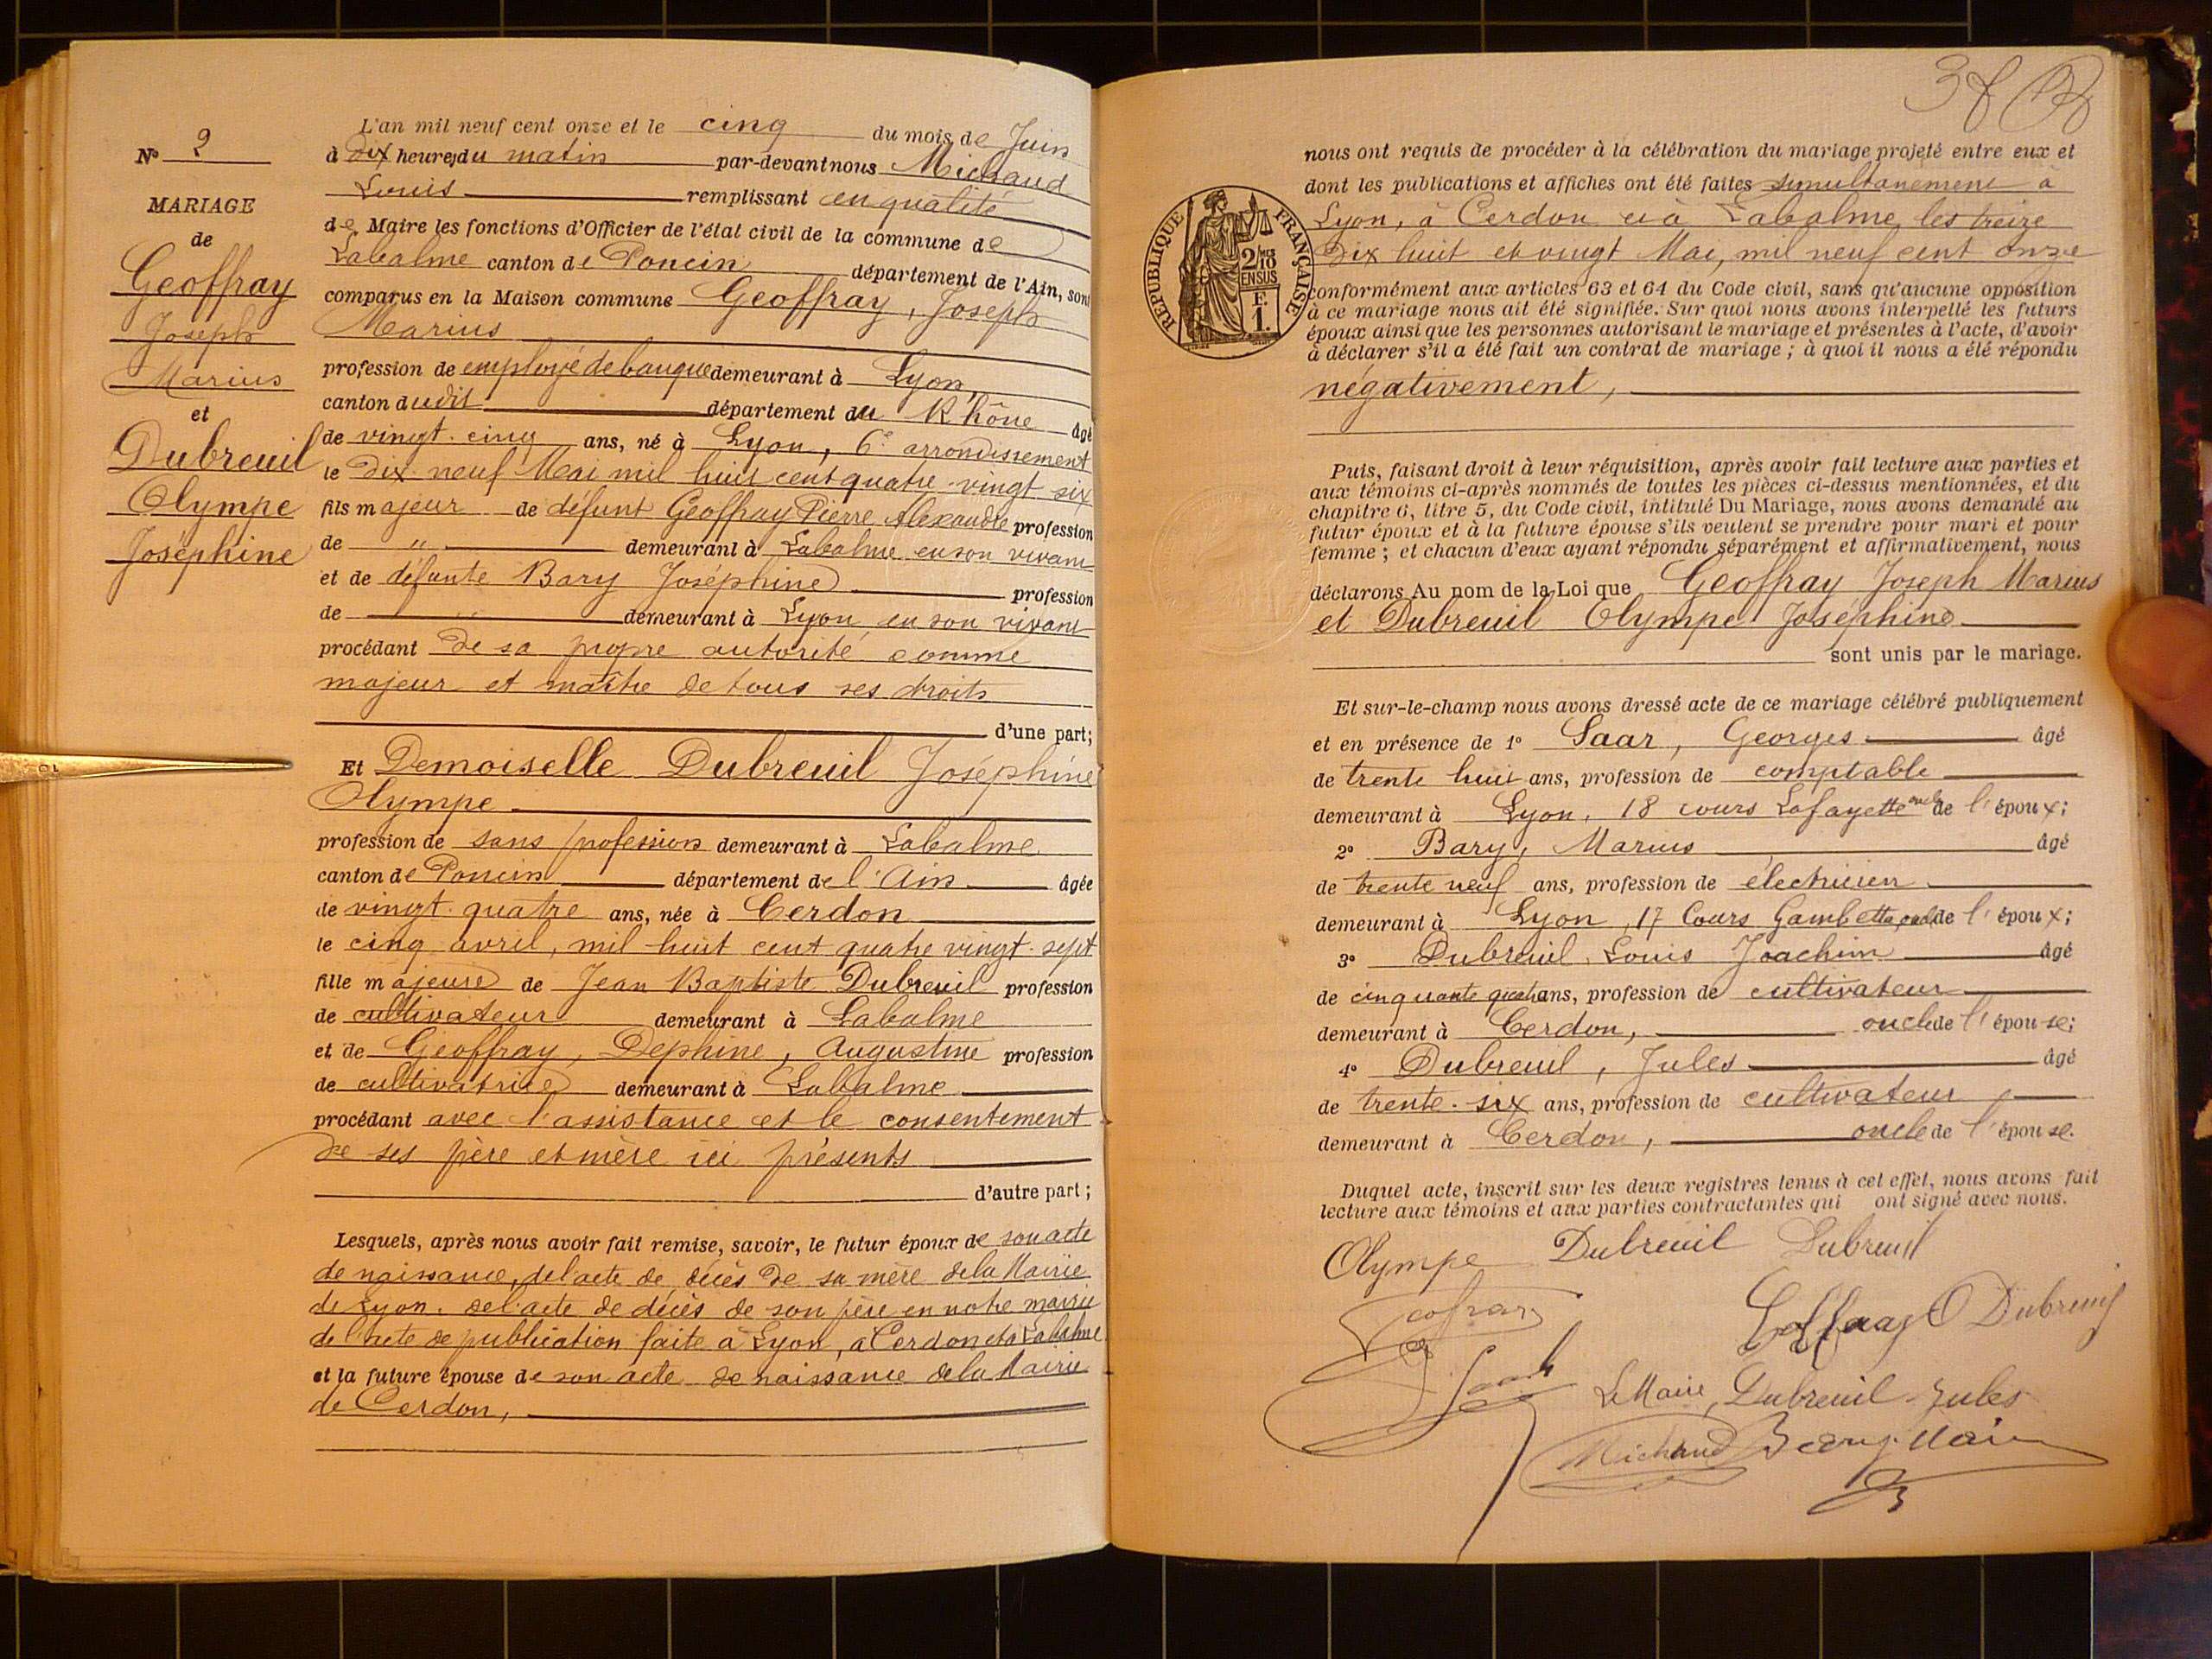 N° 2
MARIAGE
de
Geoffray
Joseph
Marius
et
Dubreuil
Olympe
Joséphine
L'an mil neuf cent onze et le cinq du mois de Juin
à dix heures du matin par-devant nous Michaud
Louis remplissant en qualité
de Maire les fonctions d'Officier de l'état civil de la commune de
Labalme canton de Poncin département de l'Ain, sont
comparus en la Maison commune Geoffray, Joseph
Marius
profession de employé de banque demeurant à Lyon,
canton dudit département du Rhône âgé
de vingt-cinq ans, né à Lyon, 6e arrondissement
le dix-neuf Mai mil huit cent quatre-vingt six
fils majeur de défunt Geoffray Pierre Alexandre profession
de " demeurant à Labalme en son vivant
et de défunte Bary Joséphine profession
de " demeurant à Lyon en son vivant
procédant de sa propre autorité comme
majeur et maître de tous ses droits
d'une part;
Et Demoiselle Dubreuil Joséphine
Olympe
profession de sans profession demeurant à Labalme
canton de Poncin département de l'Ain âgée
de vingt-quatre ans, née à Cerdon
le cinq avril, mil huit cent quatre vingt-sept
fille majeure de Jean Baptiste Dubreuil profession
de cultivateur demeurant à Labalme
et de Geoffray, Dephine, Augustine profession
de cultivatrice demeurant à Labalme
procédant avec l'assistance et le consentement
de ses père et mère ici présents
d'autre part;
Lesquels, après nous avoir fait remise, savoir, le futur époux de son acte
de naissance, de l'acte de décès de sa mère de la Mairie
de Lyon. de l'acte de décès de son père en notre mairie
de l'acte de publication faite à Lyon, à Cerdon et à Labalme
et la future épouse de son acte de naissance de la Mairie
de Cerdon,
38
nous ont requis de procéder à la célébration du mariage projeté entre eux et
dont les publications et affiches ont été faites simultanement à
Lyon, à Cerdon et à Labalme, les treize
Dix huit et vingt Mai, mil neuf cent onze
RÉPUBLIQUE FRANÇAISE
2/10
EN SUS
F.
1.
conformément aux articles 63 et 64 du Code civil, sans qu'aucune opposition
à ce mariage nous ait été signifiée. Sur quoi nous avons interpellé les futurs
époux ainsi que les personnes autorisant le mariage et présentes à l'acte, d'avoir
à déclarer s'il a été fait un contrat de mariage; à quoi il nous a été répondu
négativement,
Puis, faisant droit à leur réquisition, après avoir fait lecture aux parties et
aux témoins ci-après nommés de toutes les pièces ci-dessus mentionnées, et du
chapitre 6, litre 5, du Code civil, intitulé Du Mariage, nous avons demandé au
futur époux et à la future épouse s'ils veulent se prendre pour mari et pour
femme; et chacun d'eux ayant répondu séparément et affirmativement, nous
déclarons Au nom de la Loi que Geoffray Joseph Marius
et Dubreuil Olympe Joséphine
sont unis par le mariage.
Et sur-le-champ nous avons dressé acte de ce mariage célébré publiquement
et en présence de 1° Saar, Georges âgé
de trente huit ans, profession de comptable
demeurant à Lyon, 18 cours Lafayette oncle de l'époux;
2° Bary, Marius âgé
de trente neuf ans, profession de électricien
demeurant à Lyon, 17 Cours Gambetta, oncle de l'époux;
3° Dubreuil, Louis Joachim âgé
de cinquante quatre ans, profession de cultivateur
demeurant à Cerdon, oncle de l'épouse;
4° Dubreuil, Jules âgé
de trente-six ans, profession de cultivateur
demeurant à Cerdon, oncle de l'épouse.
Duquel acte, inscrit sur les deux registres tenus à cet effet, nous avons fait
lecture aux témoins et aux parties contractantes qui ont signé avec nous.
Olympe Dubreuil Dubreuil
Geofray Geoffray O Dubreuil
Saar Le Maire, Dubreuil Jules
Michaud Bary Marius